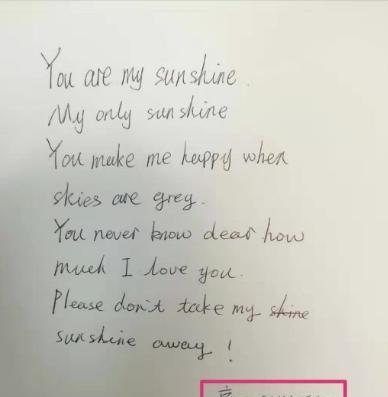 You are my sunshine.
My only sunshine
You make me happy when
skies are grey.
You never know dear how
much I love you.
Please don't take my shine
sunshine away!